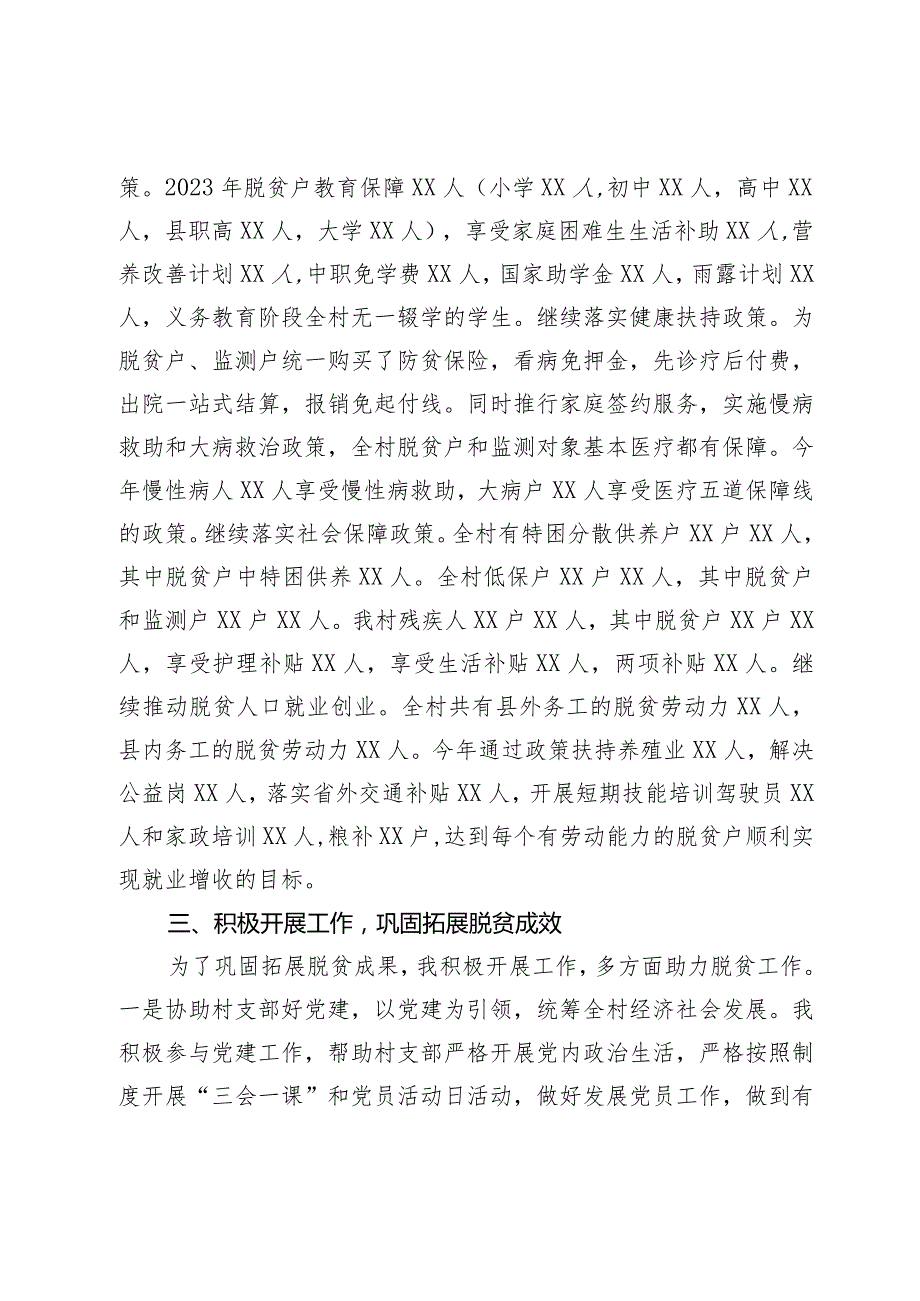 策。2023 年脱贫户教育保障 XX 人（小学 XX 人,初中 XX 人，高中 XX
人，县职高 XX 人，大学 XX 人），享受家庭困难生生活补助 XX 人,营
养改善计划 XX 人,中职免学费 XX 人，国家助学金 XX 人，雨露计划 XX
人，义务教育阶段全村无一辍学的学生。继续落实健康扶持政策。为
脱贫户、监测户统一购买了防贫保险，看病免押金，先诊疗后付费，
出院一站式结算，报销免起付线。同时推行家庭签约服务，实施慢病
救助和大病救治政策，全村脱贫户和监测对象基本医疗都有保障。今
年慢性病人 XX 人享受慢性病救助，大病户 XX 人享受医疗五道保障线
的政策。继续落实社会保障政策。全村有特困分散供养户 XX 户 XX 人，
其中脱贫户中特困供养 XX 人。全村低保户 XX 户 XX 人，其中脱贫户
和监测户 XX 户 XX 人。我村残疾人 XX 户 XX 人，其中脱贫户 XX 户 XX
人，享受护理补贴 XX 人，享受生活补贴 XX 人，两项补贴 XX 人。继
续推动脱贫人口就业创业。全村共有县外务工的脱贫劳动力 XX 人，
县内务工的脱贫劳动力 XX 人。今年通过政策扶持养殖业 XX 人，解决
公益岗 XX 人，落实省外交通补贴 XX 人，开展短期技能培训驾驶员 XX
人和家政培训 XX 人,粮补 XX 户,达到每个有劳动能力的脱贫户顺利实
现就业增收的目标。
三、积极开展工作，巩固拓展脱贫成效
为了巩固拓展脱贫成果，我积极开展工作，多方面助力脱贫工作。
一是协助村支部好党建，以党建为引领，统筹全村经济社会发展。我
积极参与党建工作，帮助村支部严格开展党内政治生活，严格按照制
度开展“三会一课”和党员活动日活动，做好发展党员工作，做到有